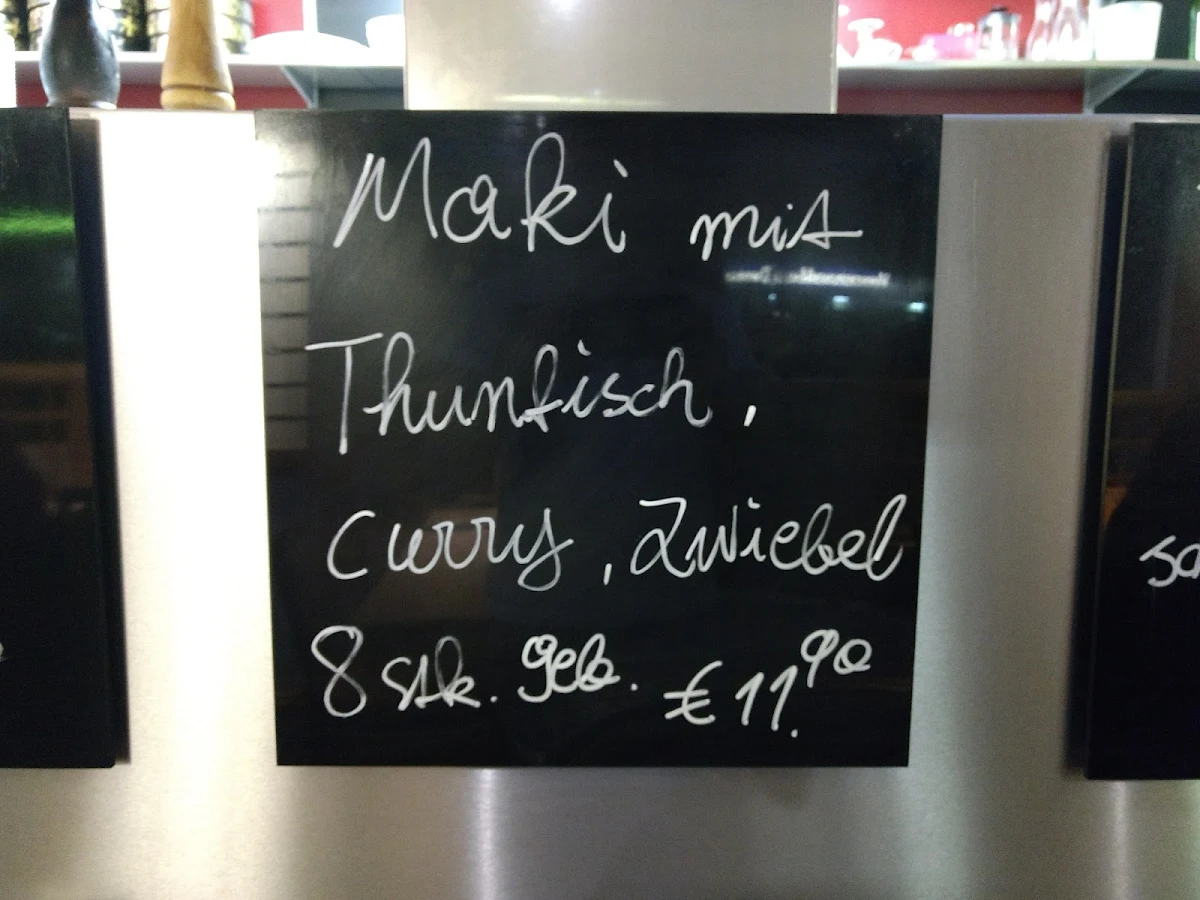 Maki mit
Thunfisch,
Curry, Zwiebel
8 Stk. geb. € 11.90